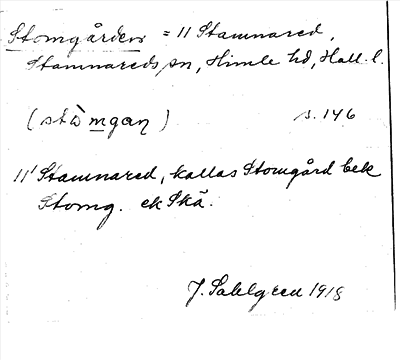 Stomgården = 11 Stamnared,
Stamnareds sn, Himle hd, Hall. l.
(stòmgan) s. 146
11' Stamnared, kallas Stomgård bek
Stomg. ek Skä.
J. Sahlgren 1918